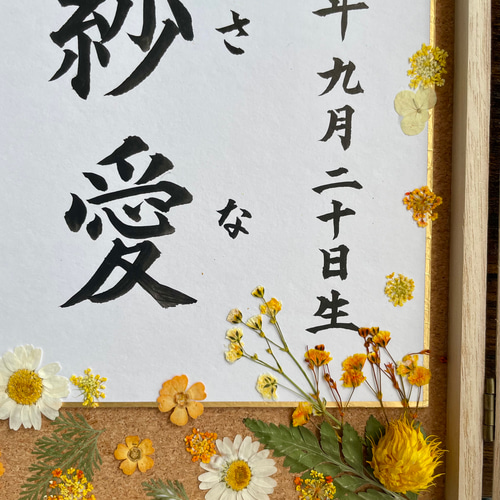 年九月二十日生
さな
紗愛